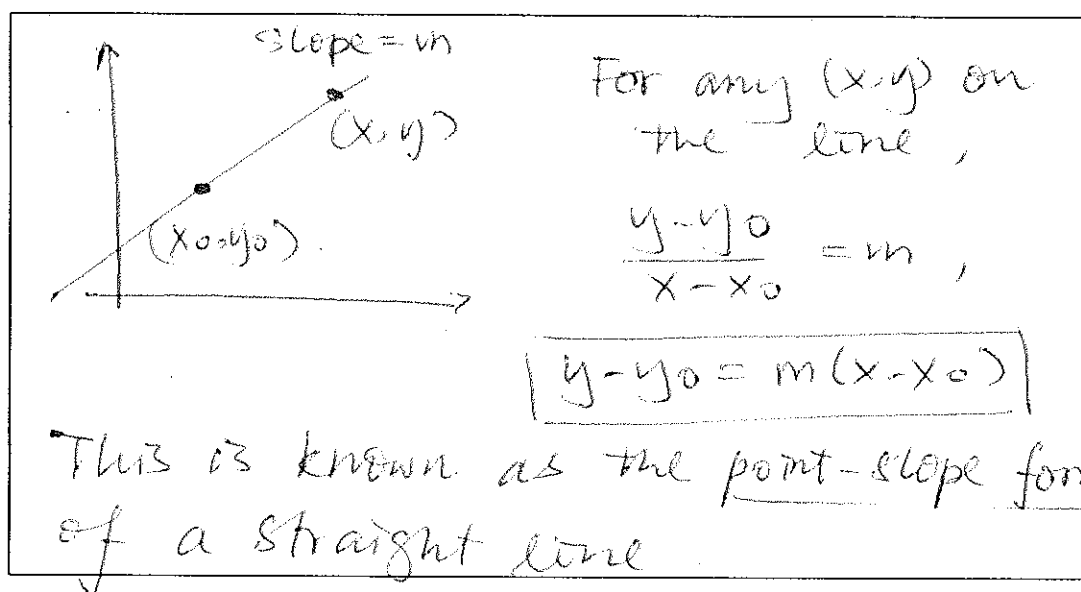 slope = m
(x, y)
(x0, y0).
For any (x, y) on
the line,
y - y0
x - x0
= m ,
y - y0 = m(x - x0)
This is known as the point-slope form
of a straight line